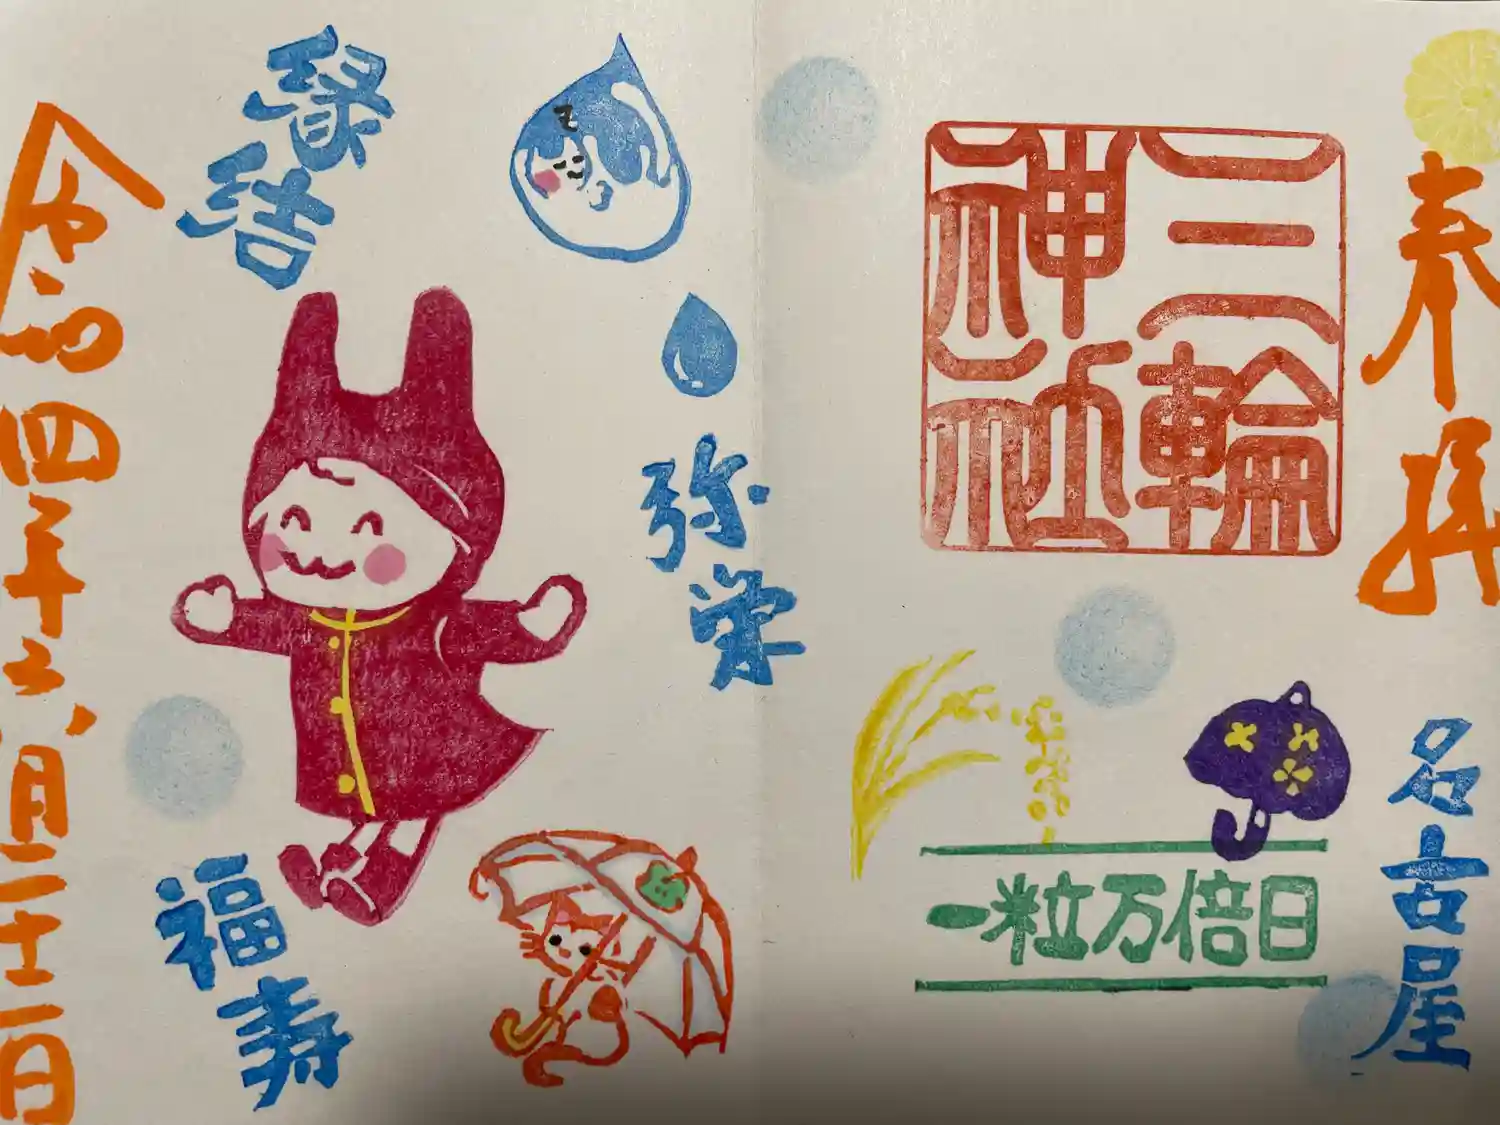 奉拝
名古屋
三輪
神社
一粒万倍日
弥栄
z
縁結
福寿
令和四年六月二十二日